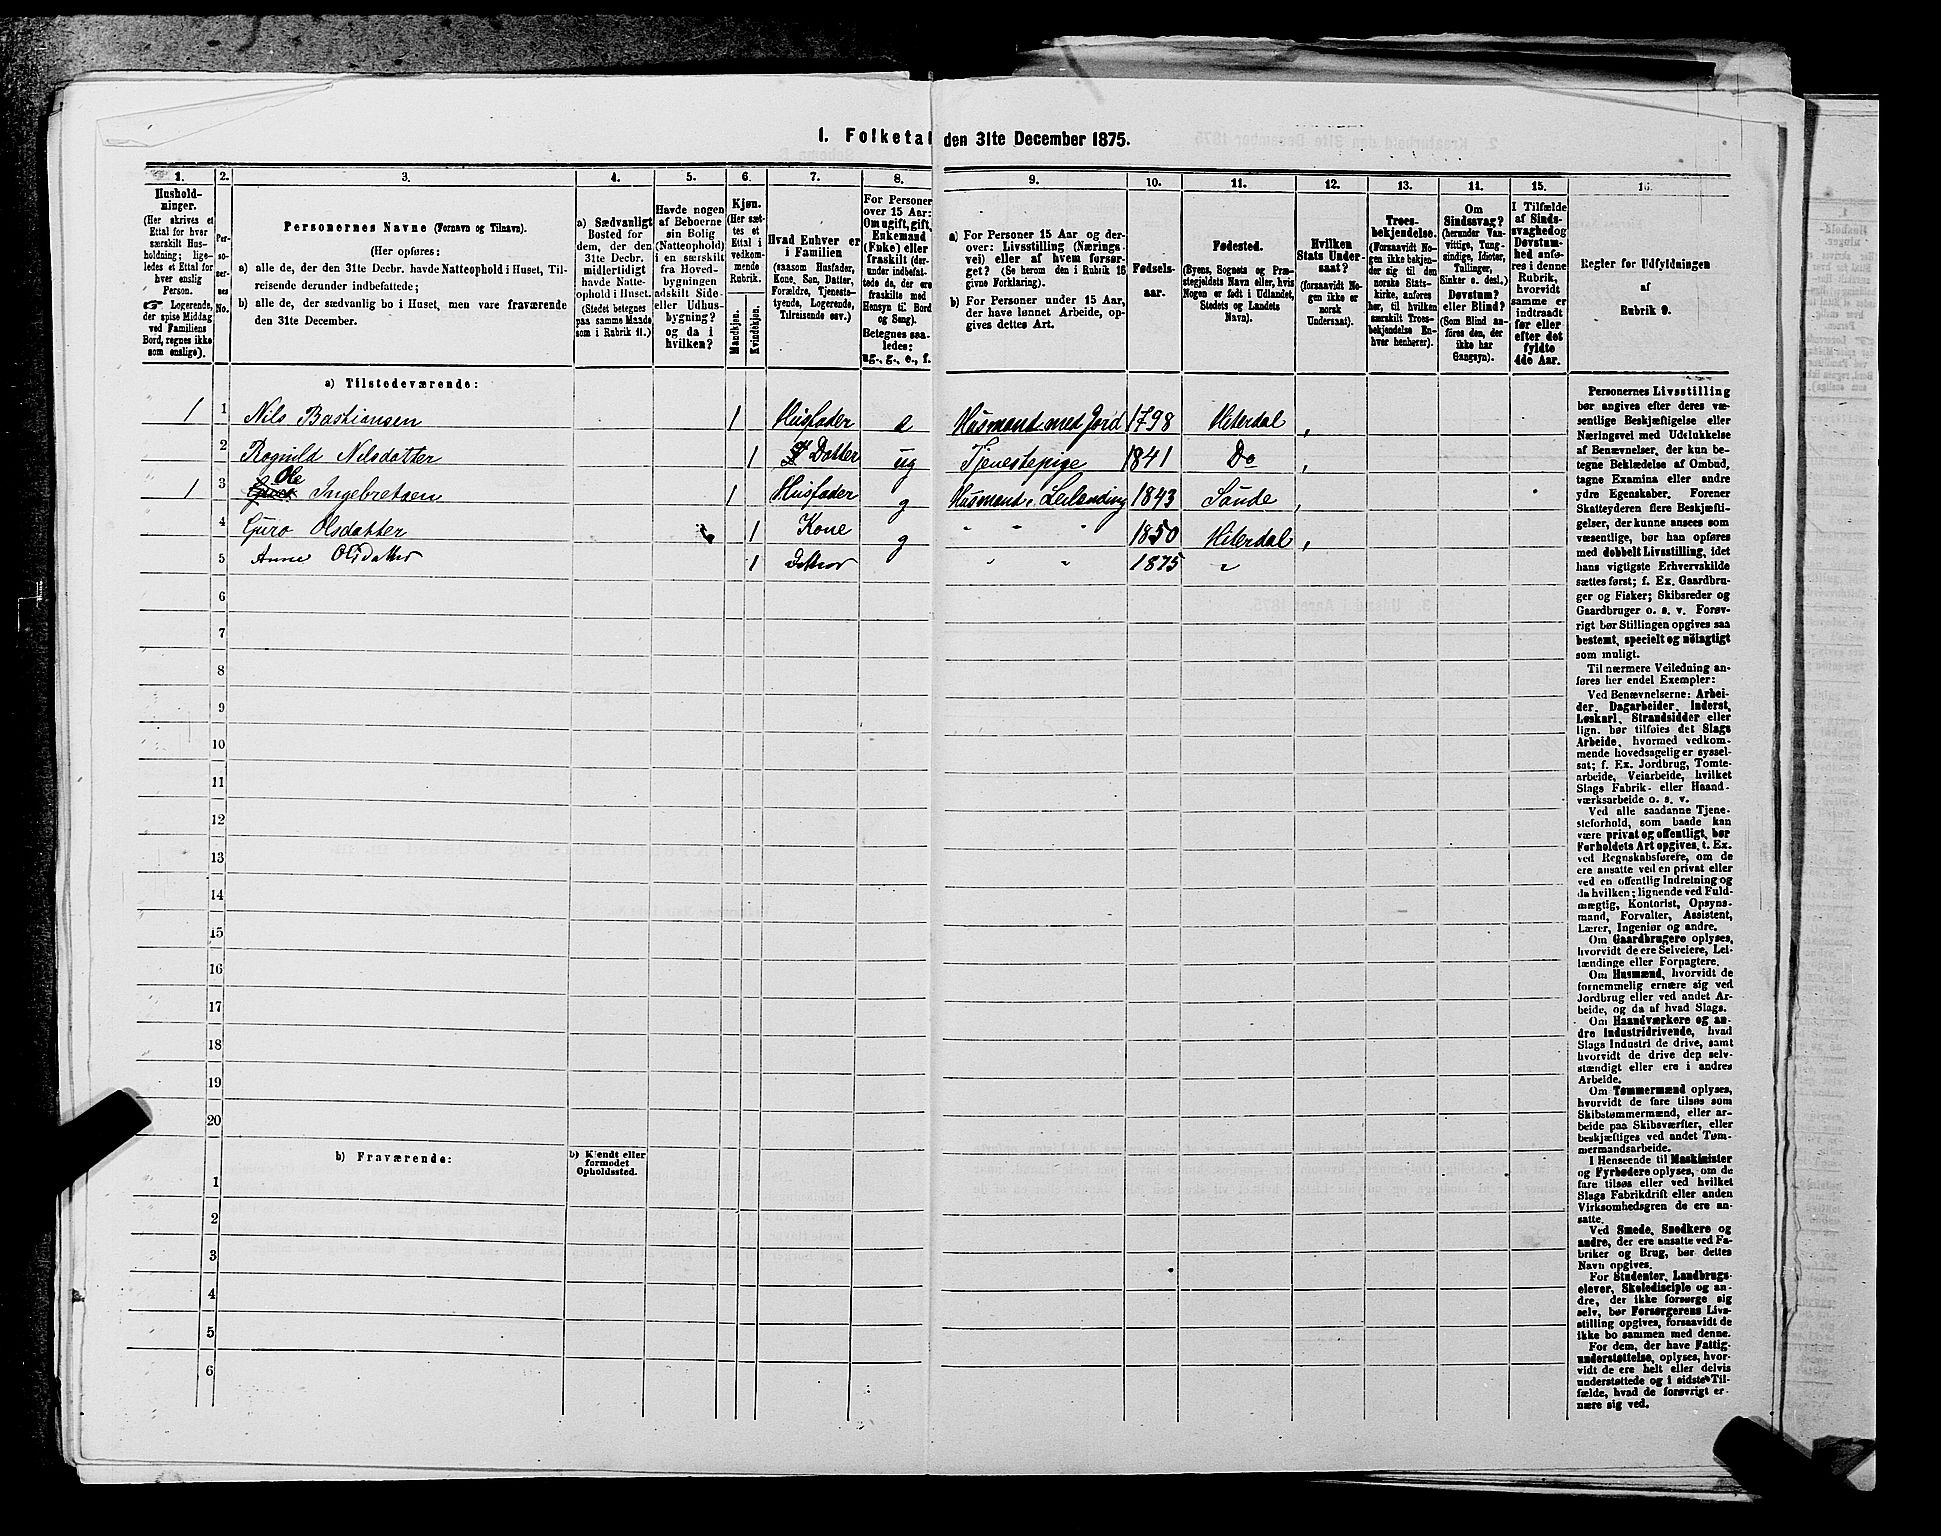 1. Folketal den 31te December 1875.
1.
2.
3.
4.
5.
6.
7.
8.
9.
10.
11.
12.
13.
14.
15.
16.
Hushold-
ninger.
(Her skrives et
Ettal for hver
særskilt Hus-
holdning; lige-
ledes et Ettal for
hver enslig
Person.
☞ Logerende,
der spise Middag
ved Familiens
Bord, regnes ikke
som enslige).
Per-
so-
ner-
nes
No.
Personernes Navne (Fornavn og Tilnavn).
(Her opføres:
a) alle de, der den 31te Decbr. havde Natteophold i Huset, Til-
reisende derunder indbefattede;
b) alle de, der sædvanlig bo i Huset, men vare fraværende
den 31te December.
a) Sædvanligt
Bosted for
dem, der den
31te Decbr.
midlertidigt
havde Natte-
ophold i Huset.
(Stedet betegnes
paa samme Maade
som i Rubrik 11.)
Havde nogen
af Beboerne
sin Bolig
(Natteophold)
i en særskilt
fra Hoved-
bygningen
adskilt Side-
eller Udhus-
bygning?
og da i
hvilken?
Kjøn.
(Her sæt-
tes et
Ettal i
vedkom-
mende
Rubrik.
Mandkjøn.
Kvindekjøn.
Hvad Enhver er
i Familien
(saasom Husfader,
Kone, Søn, Datter,
Forældre, Tjeneste-
tyende, Logerende,
Tilreisende osv.)
For Personer
over 15 Aar:
Om ugift, gift,
Enkemand
(Enke) eller
fraskilt (der-
under indbefat-
tede da, der ere
fraskilte med
Hensyn til Bord
og Seng).
Betegnes saa-
ledes:
ug., g., e., f.
a) For Personer 15 Aar og der-
over: Livsstilling (Nærings-
vei) eller af hvem forsør-
get? (Se herom den i Rubrik 16
givne Forklaring).
b) For Personer under 15 Aar,
der have lønnet Arbeide, op-
gives dettes Art.
Fødsels-
aar.
Fødested.
(Byens, Sognets og Præ-
stegjeldets Navn eller, hvis
Nogen er født i Udlandet,
Stedets og Landets
Navn).
Hvilken
Stats Under-
saat?
(forsaavidt No-
gen ikke er
norsk
Undersaat).
Troes-
bekjendelse.
(Forsaavidt No-
gen ikke bekjen-
der sig til den
norske Stats-
kirke, anføres
her, til hvilken
særskilt Troes-
bekjendelse En-
hver henhører).
Om
Sindssvag?
(herunder Van-
vittige, Tung-
sindige, Idioter,
Tullinger,
Sinker o. desl.)
Døvstum?
eller Blind?
(Som Blind an-
føres den, der
ikke har
Gangsyn).
I Tilfælde
af Sinds-
svaghed og
Døvstum-
hed anfø-
res i denne
Rubrik,
hvorvidt
samme er
indtraadt
før eller
efter det
fyldte
4de Aar.
Regler for Udfyldningen
af
Rubrik 9.
a) Tilstedeværende:
1 1 Nils Bastiansen 1 Husfader e Husmand med Jord 1798 Hiterdal
2 Rognild Nilsdatter 1 Datter ug Tjenestepige 1841 Do
Ole
1 3 Ingebretsen 1 Husfader g Husmand, Leilending 1843 Sünde
4 Guro Olsdatter 1 Kone g " " " 1850 Hiterdal
5 Anne Olsdatter 1 Datter " " 1875 "
6
7
8
9
10
11
12
13
14
15
16
17
18
19
20
b) Fraværende:
b) Kjendt eller
formodet
Opholdssted.
1
2
3
4
5
6
Personernes Livsstilling
bør angives efter deres væ-
sentlige Beskjæftigelse eller
Næringsvei med Udelukkelse
af Benævnelser, der kun be-
tegne Beklædelse af Ombud,
tagne Examina eller andre
ydre Egenskaber. Forener
Skatteyderen flere Beskjæfti-
gelser, der kunne ansees som
væsentlige, bør han opføres
med dobbelt Livsstilling, idet
hans vigtigste Erhvervskilde
sættes først; f. Ex. Gaardbru-
ger og Fisker; Skibsreder og
Gaardbruger o. s. v. Forøv-
rigt bør Stillingen opgives saa
bestemt, specielt og nøiagtigt
som muligt.
Til nærmere Veiledning an-
føres her endel Exempler:
Ved Benævnelserne: Arbei-
der, Dagarbeider, Inderst,
Løskarl, Strandsidder eller
lign. bør tilføies det Slags
Arbeide, hvormed vedkom-
mende hovedsagelig er syssel-
sat; f. Ex. Jordbrug, Tomte-
arbeide, Veiarbeide, hvilket
Slags Fabrik- eller Haand-
værksarbeide o. s. v.
Ved alle saadanne Tjene-
steforhold, som baade kan
være privat og offentligt, bør
Forholdets Art opgives, t. Ex.
ved Regnskabsførere, om de
ere ansatte ved en privat eller
ved en offentlig Indretning og
da hvilken; lignende ved Fuld-
mægtig, Kontorist, Opsyns-
mand, Forvalter, Assistent,
Lærer, Ingeniør og andre.
Om Gaardbrugere oplyses,
hvorvidt de ere Selveiere, Lei-
lændinge eller Forpagtere.
Om Husmænd, hvorvidt de
fornemmelig ernære sig ved
Jordbrug eller ved andet Ar-
beide, og da af hvad Slags.
Om Haandværkere og an-
dre Industridrivende, hvad
Slags Industri de drive, samt
hvorvidt de drive den selv-
stændigt eller ere i andres
Arbeide.
Om Tømmermænd oplyses,
hvorvidt de fare tilsøs som
Skibstømmermænd, eller ar-
beide paa Skibsværfter, eller
beskjæftiges ved andet Tøm-
mermandsarbeide.
I Henseende til Maskinister
og Fyrbødere oplyses, om de
fare tilsøs eller ved hvilket
Slags Fabrikdrift eller anden
Virksomhedsgren de ere an-
satte.
Ved Smede, Snedkere og
andre, der ere ansatte ved Fa-
briker og Brug, bør dettes
Navn opgives.
For Studenter, Landbrugs-
elever, Skoledisciple og an-
dre, der ikke forsørge sig
selv, bør Forsørgerens Livs-
stilling opgives, forsaavidt de
ikke bo sammen med denne.
For dem, der have Fattig-
understøttelse, oplyses, hvor-
vidt de ere helt eller delvis
understøttede og i sidste Til-
fælde, hvad de forøvrigt er-
nære sig ved.